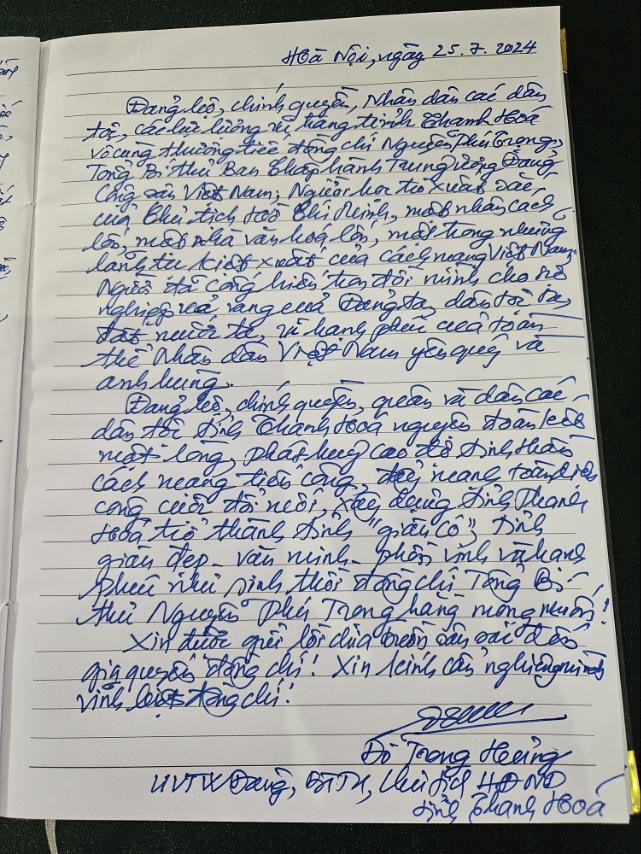 Hà Nội, ngày 25.7.2024
Đảng bộ, chính quyền, Nhân dân các dân
tộc, các lực lượng vũ trang tỉnh Thanh Hoá
vô cùng thương tiếc đồng chí Nguyễn Phú Trọng,
Tổng Bí thư Ban Chấp hành Trung ương Đảng
Cộng sản Việt Nam; Người học trò xuất sắc
của Chủ tịch Hồ Chí Minh, một nhân cách
lớn, một nhà văn hoá lớn, một trong những
lãnh tụ kiệt xuất của cách mạng Việt Nam.
Người đã cống hiến trọn đời mình cho sự
nghiệp vẻ vang của Đảng ta, dân tộc ta,
đất nước ta, vì hạnh phúc của toàn
thể Nhân dân Việt Nam yêu quý và
anh hùng.
Đảng bộ, chính quyền, quân và dân các
dân tộc tỉnh Thanh Hoá nguyện đoàn kết
một lòng, phát huy cao độ tinh thần
cách mạng tiến công, đẩy mạnh toàn diện
công cuộc đổi mới, xây dựng tỉnh Thanh
Hoá trở thành tỉnh "giàu có", tỉnh
giàu đẹp - văn minh - phồn vinh và hạnh
phúc như sinh thời đồng chí Tổng Bí
thư Nguyễn Phú Trọng hằng mong muốn!
Xin được gửi lời chia buồn sâu sắc đến
gia quyến đồng chí! Xin kính cẩn nghiêng mình
vĩnh biệt đồng chí!
Đỗ Trọng Hưng
UVTW Đảng, BTTU, Chủ tịch HĐND
tỉnh Thanh Hoá